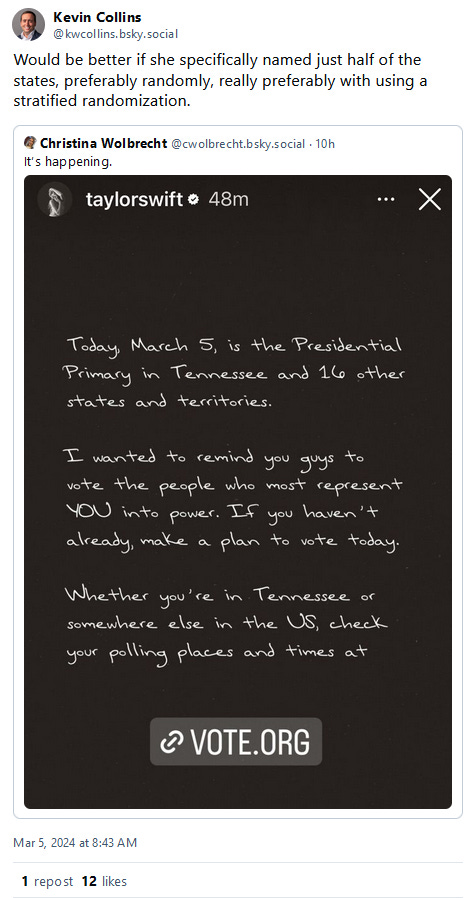 Kevin Collins
@kwcollins.bsky.social
Would be better if she specifically named just half of the
states, preferably randomly, really preferably with using a
stratified randomization.
Christina Wolbrecht @cwolbrecht.bsky.social · 10h
It's happening.
taylorswift 48m
Today, March 5, is the Presidential
Primary in Tennessee and 16 other
states and territories.
I wanted to remind you guys to
vote the people who most represent
YOU into power. If you haven't
already, make a plan to vote today.
Whether you're in Tennessee or
somewhere else in the US, check
your polling places and times at
VOTE.ORG
Mar 5, 2024 at 8:43 AM
1 repost 12 likes